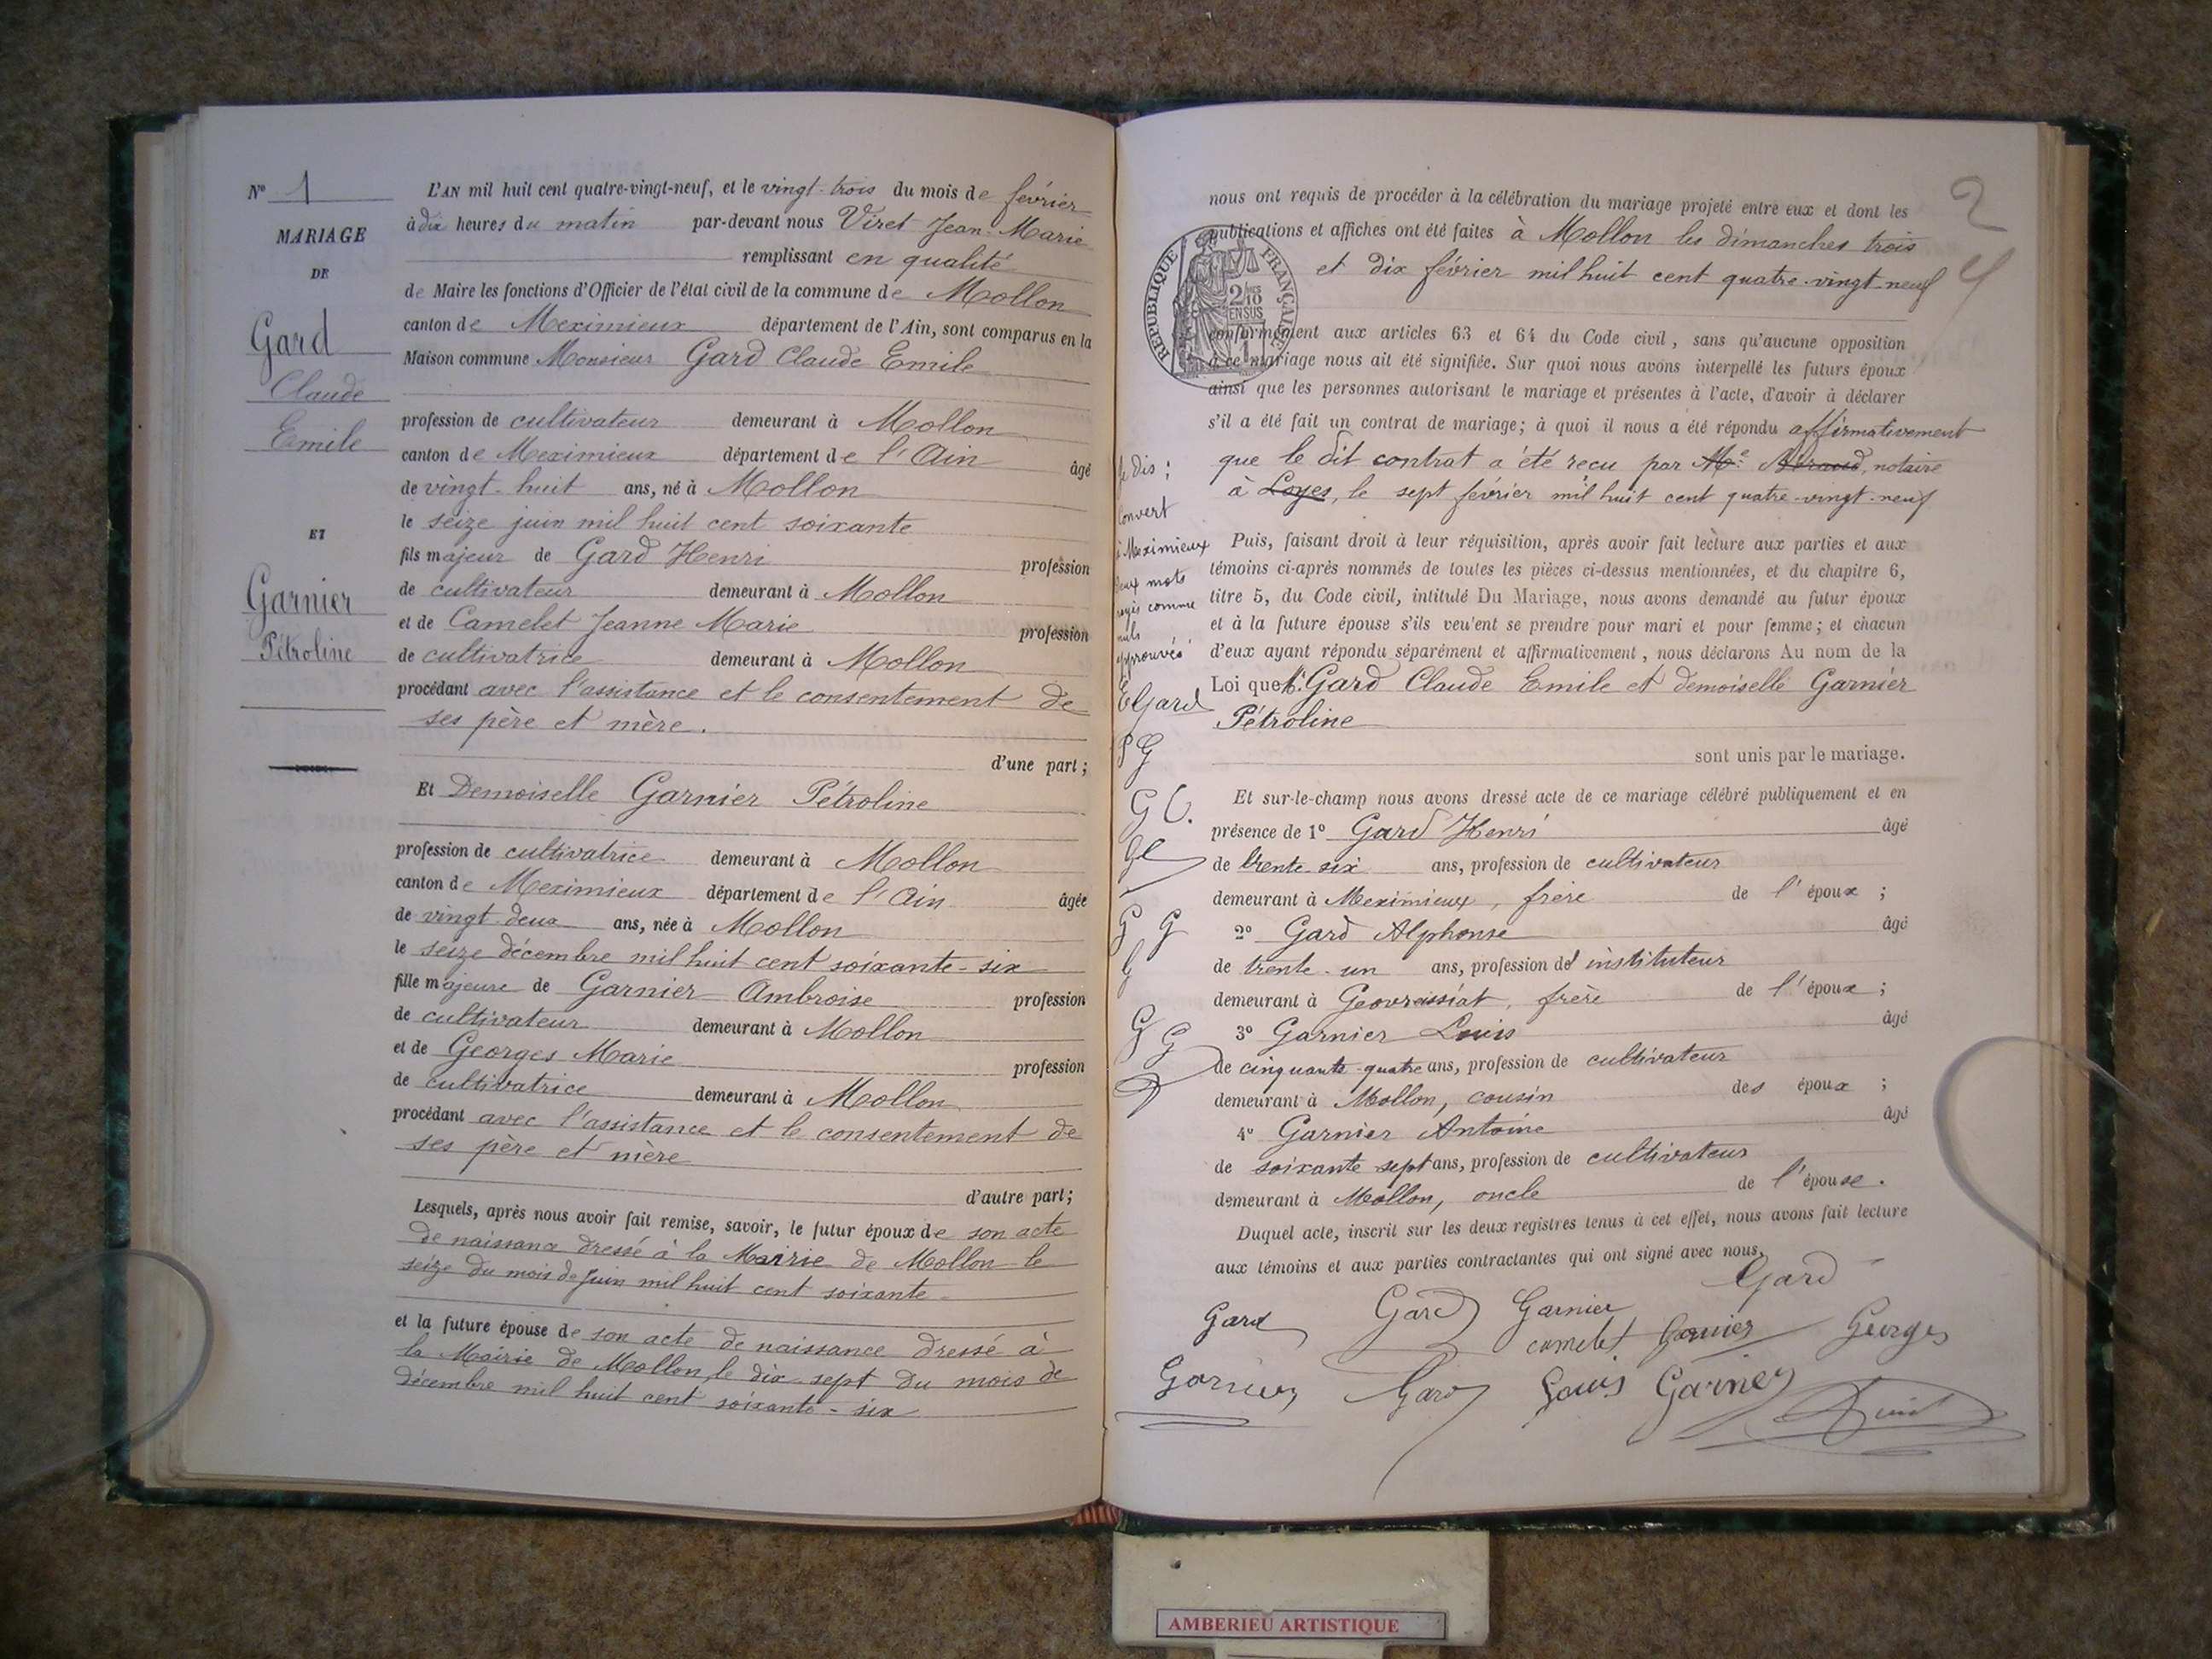 N° 1
MARIAGE
DE
Gard
Claude
Emile
ET
Garnier
Pétroline
L'AN mil huit cent quatre-vingt-neuf, et le vingt-trois du mois de février
à dix heures du matin par-devant nous Viret Jean-Marie
remplissant en qualité
de Maire les fonctions d'Officier de l'état civil de la commune de Mollon
canton de Meximieux département de l'Ain, sont comparus en la
Maison commune Monsieur Gard Claude Emile
profession de cultivateur demeurant à Mollon
canton de Meximieux département de l'Ain âgé
de vingt-huit ans, né à Mollon
le seize juin mil huit cent soixante
fils majeur de Gard Henri profession
de cultivateur demeurant à Mollon
et de Camelet Jeanne Marie profession
de cultivatrice demeurant à Mollon
procédant avec l'assistance et le consentement de
ses père et mère.
d'une part;
Et Demoiselle Garnier Pétroline
profession de cultivatrice demeurant à Mollon
canton de Meximieux département de l'Ain âgée
de vingt-deux ans, née à Mollon
le seize décembre mil huit cent soixante-six
fille majeure de Garnier Ambroise profession
de cultivateur demeurant à Mollon
et de Georges Marie profession
de cultivatrice demeurant à Mollon
procédant avec l'assistance et le consentement de
ses père et mère
d'autre part;
Lesquels, après nous avoir fait remise, savoir, le futur époux de son acte
de naissance dressé à la Mairie de Mollon le
seize du mois de Juin mil huit cent soixante
et la future épouse de son acte de naissance dressé à
la Mairie de Mollon, le dix-sept du mois de
décembre mil huit cent soixante-six
2
4
nous ont requis de procéder à la célébration du mariage projeté entre eux et dont les
publications et affiches ont été faites à Mollon les dimanches trois
et dix février mil huit cent quatre-vingt-neuf
RÉPUBLIQUE FRANÇAISE
2/10
EN SUS
conformément aux articles 63 et 64 du Code civil, sans qu'aucune opposition
à ce mariage nous ait été signifiée. Sur quoi nous avons interpellé les futurs époux
ainsi que les personnes autorisant le mariage et présentes à l'acte, d'avoir à déclarer
s'il a été fait un contrat de mariage; à quoi il nous a été répondu affirmativement
que le dit contrat a été reçu par Me notaire
à Loyes, le sept février mil huit cent quatre-vingt-neuf
Je dis:
Convert
à Meximieux
deux mots
rayés comme
nuls
approuvés
E Gard
Puis, faisant droit à leur réquisition, après avoir fait lecture aux parties et aux
témoins ci-après nommés de toutes les pièces ci-dessus mentionnées, et du chapitre 6,
titre 5, du Code civil, intitulé Du Mariage, nous avons demandé au futur époux
et à la future épouse s'ils veu'ent se prendre pour mari et pour femme; et chacun
d'eux ayant répondu séparément et affirmativement, nous déclarons Au nom de la
Loi que M. Gard Claude Emile et demoiselle Garnier
Pétroline
sont unis par le mariage.
Et sur-le-champ nous avons dressé acte de ce mariage célébré publiquement et en
présence de 1° Gard Henri âgé
de trente-six ans, profession de cultivateur
demeurant à Meximieux, frère de l'époux;
2° Gard Alphonse âgé
de trente-un ans, profession d' instituteur
demeurant à Geovreissiat, frère de l'époux;
3° Garnier Louis âgé
de cinquante-quatre ans, profession de cultivateur
demeurant à Mollon, cousin des époux;
4° Garnier Antoine âgé
de soixante sept ans, profession de cultivateur
demeurant à Mollon, oncle de l'épouse.
Duquel acte, inscrit sur les deux registres tenus à cet effet, nous avons fait lecture
aux témoins et aux parties contractantes qui ont signé avec nous.
Gard
Gard Gard Garnier
camelet Garnier Georges
Garnier Gard Louis Garnier
AMBERIEU ARTISTIQUE